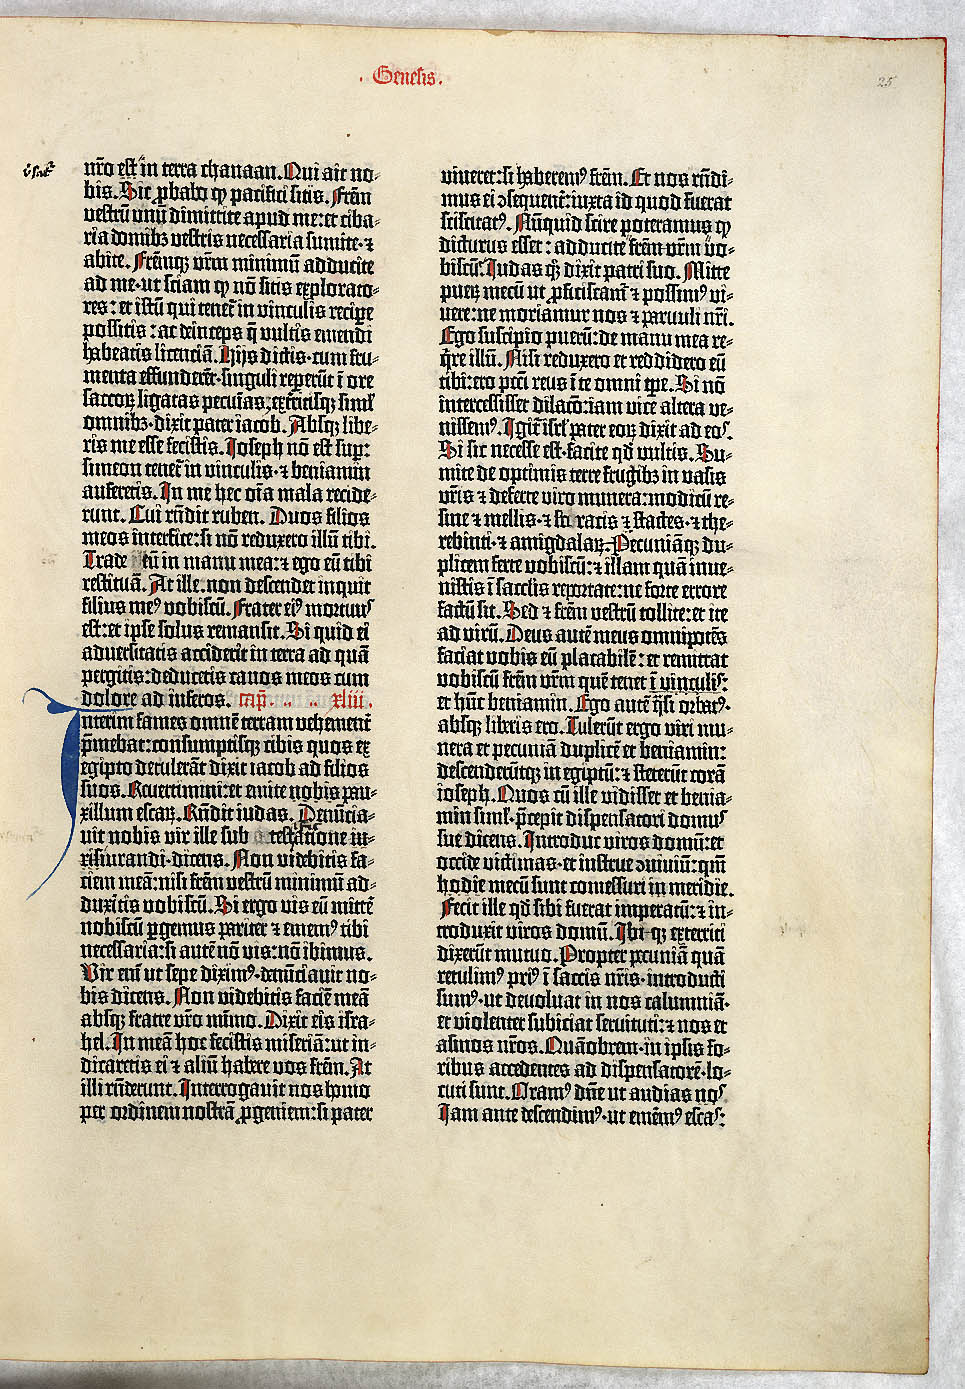 . Genesis.
25
nr̄o est in terra chanaan. Qui ait no-
bis. Sic ꝓbabo ꝙ pacifici sitis. Fratrē
vestrū unū dimittite apud me: et ciba-
ria domibꝫ vestris necessaria sumite·⁊
abite. Fr̄emqꝫ vr̄m minimū adducite
ad me·ut sciam ꝙ nō sitis explorato-
res: et istū qui tenet̄ in vinculis recipe
possitis: ac deinceps q̄ vultis emendi
habeatis licenciā. Hijs dictis·cum fru-
menta effunderēt·singuli reperērūt ī ore
saccoꝝ ligatas pecūias: exterritisqꝫ siml̄
omnibꝫ·dixit pater iacob. Absqꝫ libe-
ris me esse fecistis. Ioseph nō est sup̄:
simeon tenet̄ in vinculis·⁊ beniamin
auferetis. In me hec oīa mala recide-
runt. Cui rn̄dit ruben. Duos filios
meos interfice: si nō reduxero illū tibi.
Trade eū in manu mea: ⁊ ego eū tibi
restituā. At ille·non descendet inquit
filius meꝰ vobiscū. Frater eiꝰ mortuuſ
est: et ipse solus remansit. Si quid ei
adversitatis acciderit in terra ad quā
pergitis: deducetis canos meos cum
dolore ad inferos. cap̄. .. .. xliii.
Interim fames omnē terram vehementer̄
p̄mebat: consumptisqꝫ cibis quos ex
egipto detulerāt dixit iacob ad filios
suos. Revertimini: et emite nobis pau-
xillum escaꝝ. Rn̄dit iudas. Denūcia-
vit nobis vir ille sub testatione iu-
risiurandi·dicens. Non videbitis fa-
ciem meā: nisi fr̄em vestrū minimū ad-
duxitis vobiscū. Si ergo vis eū mittē
nobiscū ꝑgemus pariter ⁊ ememꝰ tibi
necessaria: si autē nō vis: nō ibimus.
Vir eni̅ ut sepe diximꝰ·denūciavit no-
bis dicens. Non videbitis faciē meā
absqꝫ fratre vr̄o mīmo. Dixit eis isra-
hel. In meā hoc fecistis miseriā: ut in-
dicaretis ei ⁊ aliū habere vos fr̄em. At
illi rn̄derunt. Interrogavit nos homo
per ordinem nostrā ꝓgeniem: si pater
viveret: si haberemꝰ fr̄em. Et nos rn̄di-
mus ei ↄsequent̄: iuxta id quod fuerat
sciscitatꝰ. Nūquid scire poteramus ꝙ
dicturus esset: adducite fr̄em vr̄m vo-
biscū. Iudas qꝫ dixit patri suo. Mitte
pueꝝ mecū ut ꝓficiscant̄ ⁊ possimꝰ vi-
vere: ne moriamur nos ⁊ parvuli nr̄i.
Ego suscipio puerū: de manu mea re-
q̄re illū. Nisi reduxero et reddidero eū
tibi: ero pcc̄i reus ī te omni tꝑe. Si nō
intercessisset dilac̄o: iam vice altera ve-
nissemꝰ. Igit̄ isrl̄ pater eoꝝ dixit ad eoſ.
Si sic necesse est·facite qd̄ vultis. Su-
mite de optimis terre frugibꝫ in vasis
vr̄is ⁊ deferte viro munera: modicū re-
sine ⁊ mellis·⁊ storacis ⁊ stactes·⁊ the-
rebinti·⁊ amigdalaꝝ. Pecuniāqꝫ du-
plicem ferte vobiscū: ⁊ illam quā inve-
nistis ī sacculis reportate: ne forte errore
factū sit. Sed ⁊ fr̄em vestrū tollite: et ite
ad virū. Deus autē meus omnipotēs
faciat vobis eū placabilē: et remittat
vobiscū fr̄em vr̄m quē tenet ī vinculiſ:
et hūc beniamin. Ego autē q̄si orbatꝰ·
absqꝫ liberis ero. Tulerūt ergo viri mu-
nera et pecuniā duplicē et beniamin:
descenderūtqꝫ in egiptū: ⁊ steterūt corā
ioseph. Quos cū ille vidisset et benia-
min siml̄·p̄cepit dispensatori domuſ
sue dicens. Introduc viros domū: et
occide victimas·et instrue ↄviviū: qm̄
hodie mecū sunt comesturi in meridie.
Fecit ille qd̄ sibi fuerat imperatū: ⁊ in-
troduxit viros domū. Ibi-qꝫ exterriti
dixerūt mutuo. Propter pecuniā quā
retulimꝰ priꝰ ī saccis nr̄is·introducti
sumꝰ·ut devoluat in nos calumniā·
et violenter subiciat servituti: ⁊ nos et
asinos nr̄os. Quāobrem·in ipsis fo-
ribus accedentes ad dispensatorē·lo-
cuti sunt. Oramꝰ dn̄e ut audias noſ.
Iam ante descendimꝰ·ut emēmꝰ escaſ: